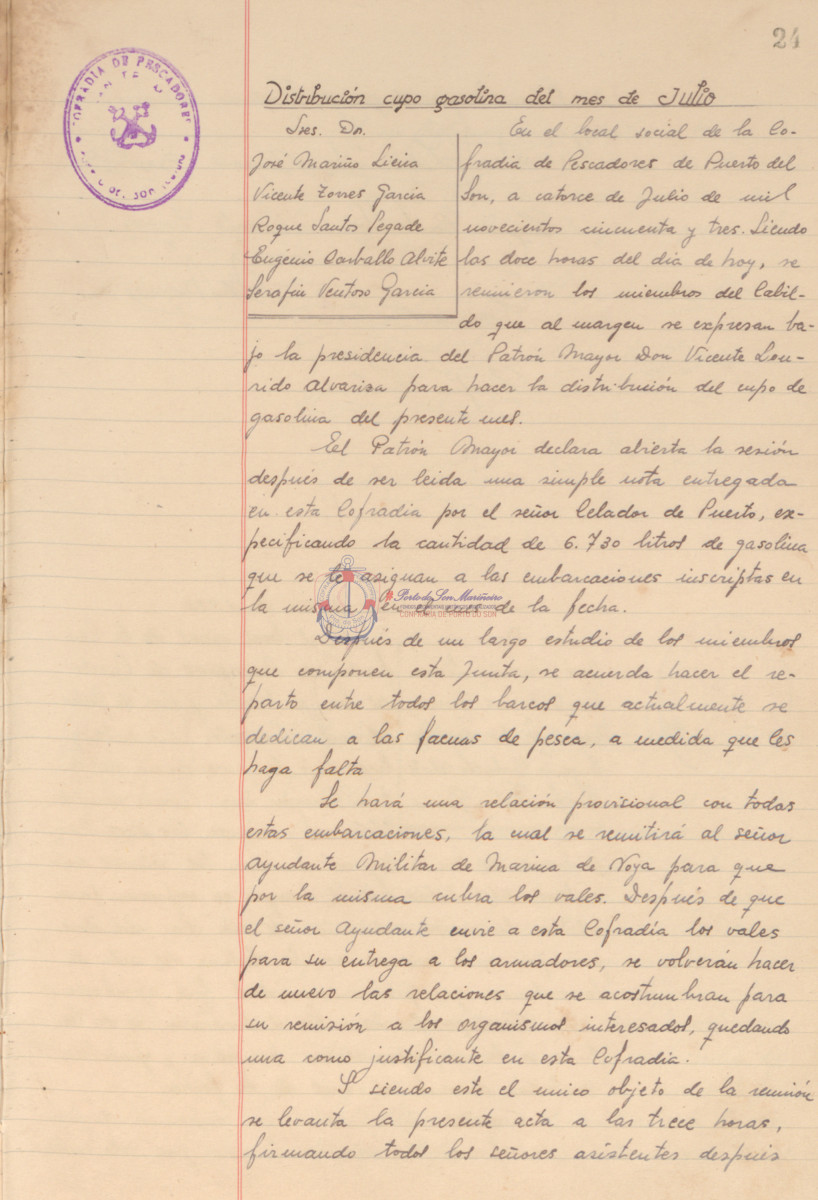 24
COFRADIA DE PESCADORES
Distribución cupo gasolina del mes de Julio
Sres. Dn.
José Mariño Sieira
Vicente Torres Garcia
Roque Santos Pegade
Eugenio Carballo Alvite
Serafin Ventoso Garcia
En el local social de la Co-
fradia de Pescadores de Puerto del
Son, a catorce de Julio de mil
novecientos cincuenta y tres. Siendo
las doce horas del dia de hoy, se
reunieron los miembros del Cabil-
do que al margen se expresan ba-
jo la presidencia del Patrón Mayor Don Vicente Lou-
rido Alvariza para hacer la distribución del cupo de
gasolina del presente mes.
El Patrón Mayor declara abierta la sesión
después de ser leida una simple nota entregada
en esta Cofradia por el señor Celador de Puerto, ex-
pecificando la cantidad de 6.730 litros de gasolina
que se le asignan a las embarcaciones inscriptas en
la misma en el mes de la fecha.
Porto do Son Mariñeiro
CONFRARÍA DE PORTO DO SON
Después de un largo estudio de los miembros
que componen esta Junta, se acuerda hacer el re-
parto entre todos los barcos que actualmente se
dedican a las faenas de pesca, a medida que les
haga falta
Se hará una relación provisional con todas
estas embarcaciones, la cual se remitirá al señor
Ayudante Militar de Marina de Noya para que
por la misma cubra los vales. Después de que
el señor Ayudante envie a esta Cofradía los vales
para su entrega a los armadores, se volverán hacer
de nuevo las relaciones que se acostumbran para
su remisión a los organismos interesados, quedando
una como justificante en esta Cofradia.
Y siendo este el unico objeto de la reunión
se levanta la presente acta a las trece horas,
firmando todos los señores asistentes después